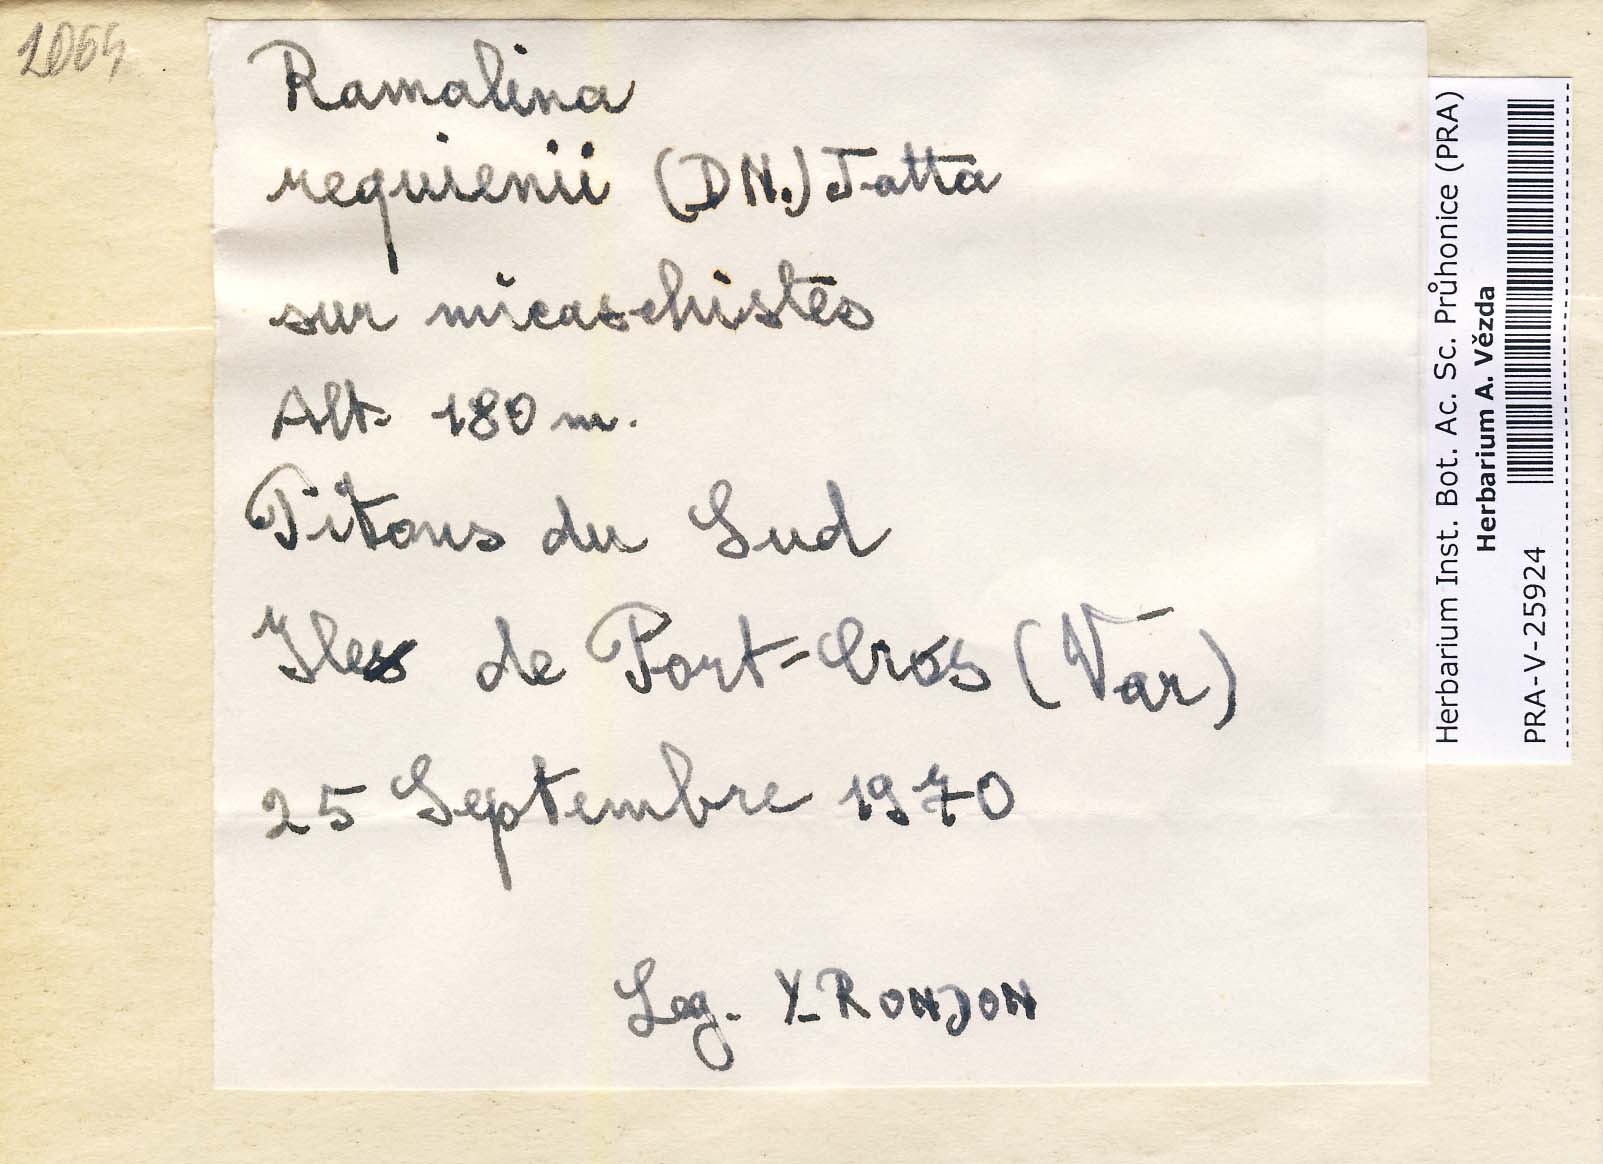 Ramalina
requienii (DN.) Jatta
sur micaschistes
Alt. 180 m.
Pitons du Sud
Iles de Port-Cros (Var)
25 Septembre 1970
Leg. Y. RONDON
Herbarium Inst. Bot. Ac. Sc. Průhonice (PRA)
Herbarium A. Vězda
PRA-V-25924